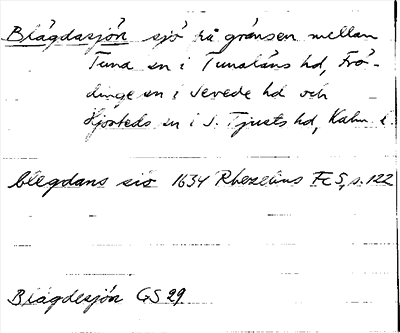 Blågdasjön sjö på gränsen mellan
Tuna sn i Tunaläns hd, Frö-
dinge sn i Sevede hd och
Hjorteds sn i S. Tjusts hd, Kalm. l.
blegdans siö 1634 Rhezelius FcS, s. 122
Blågdesjön GS 29